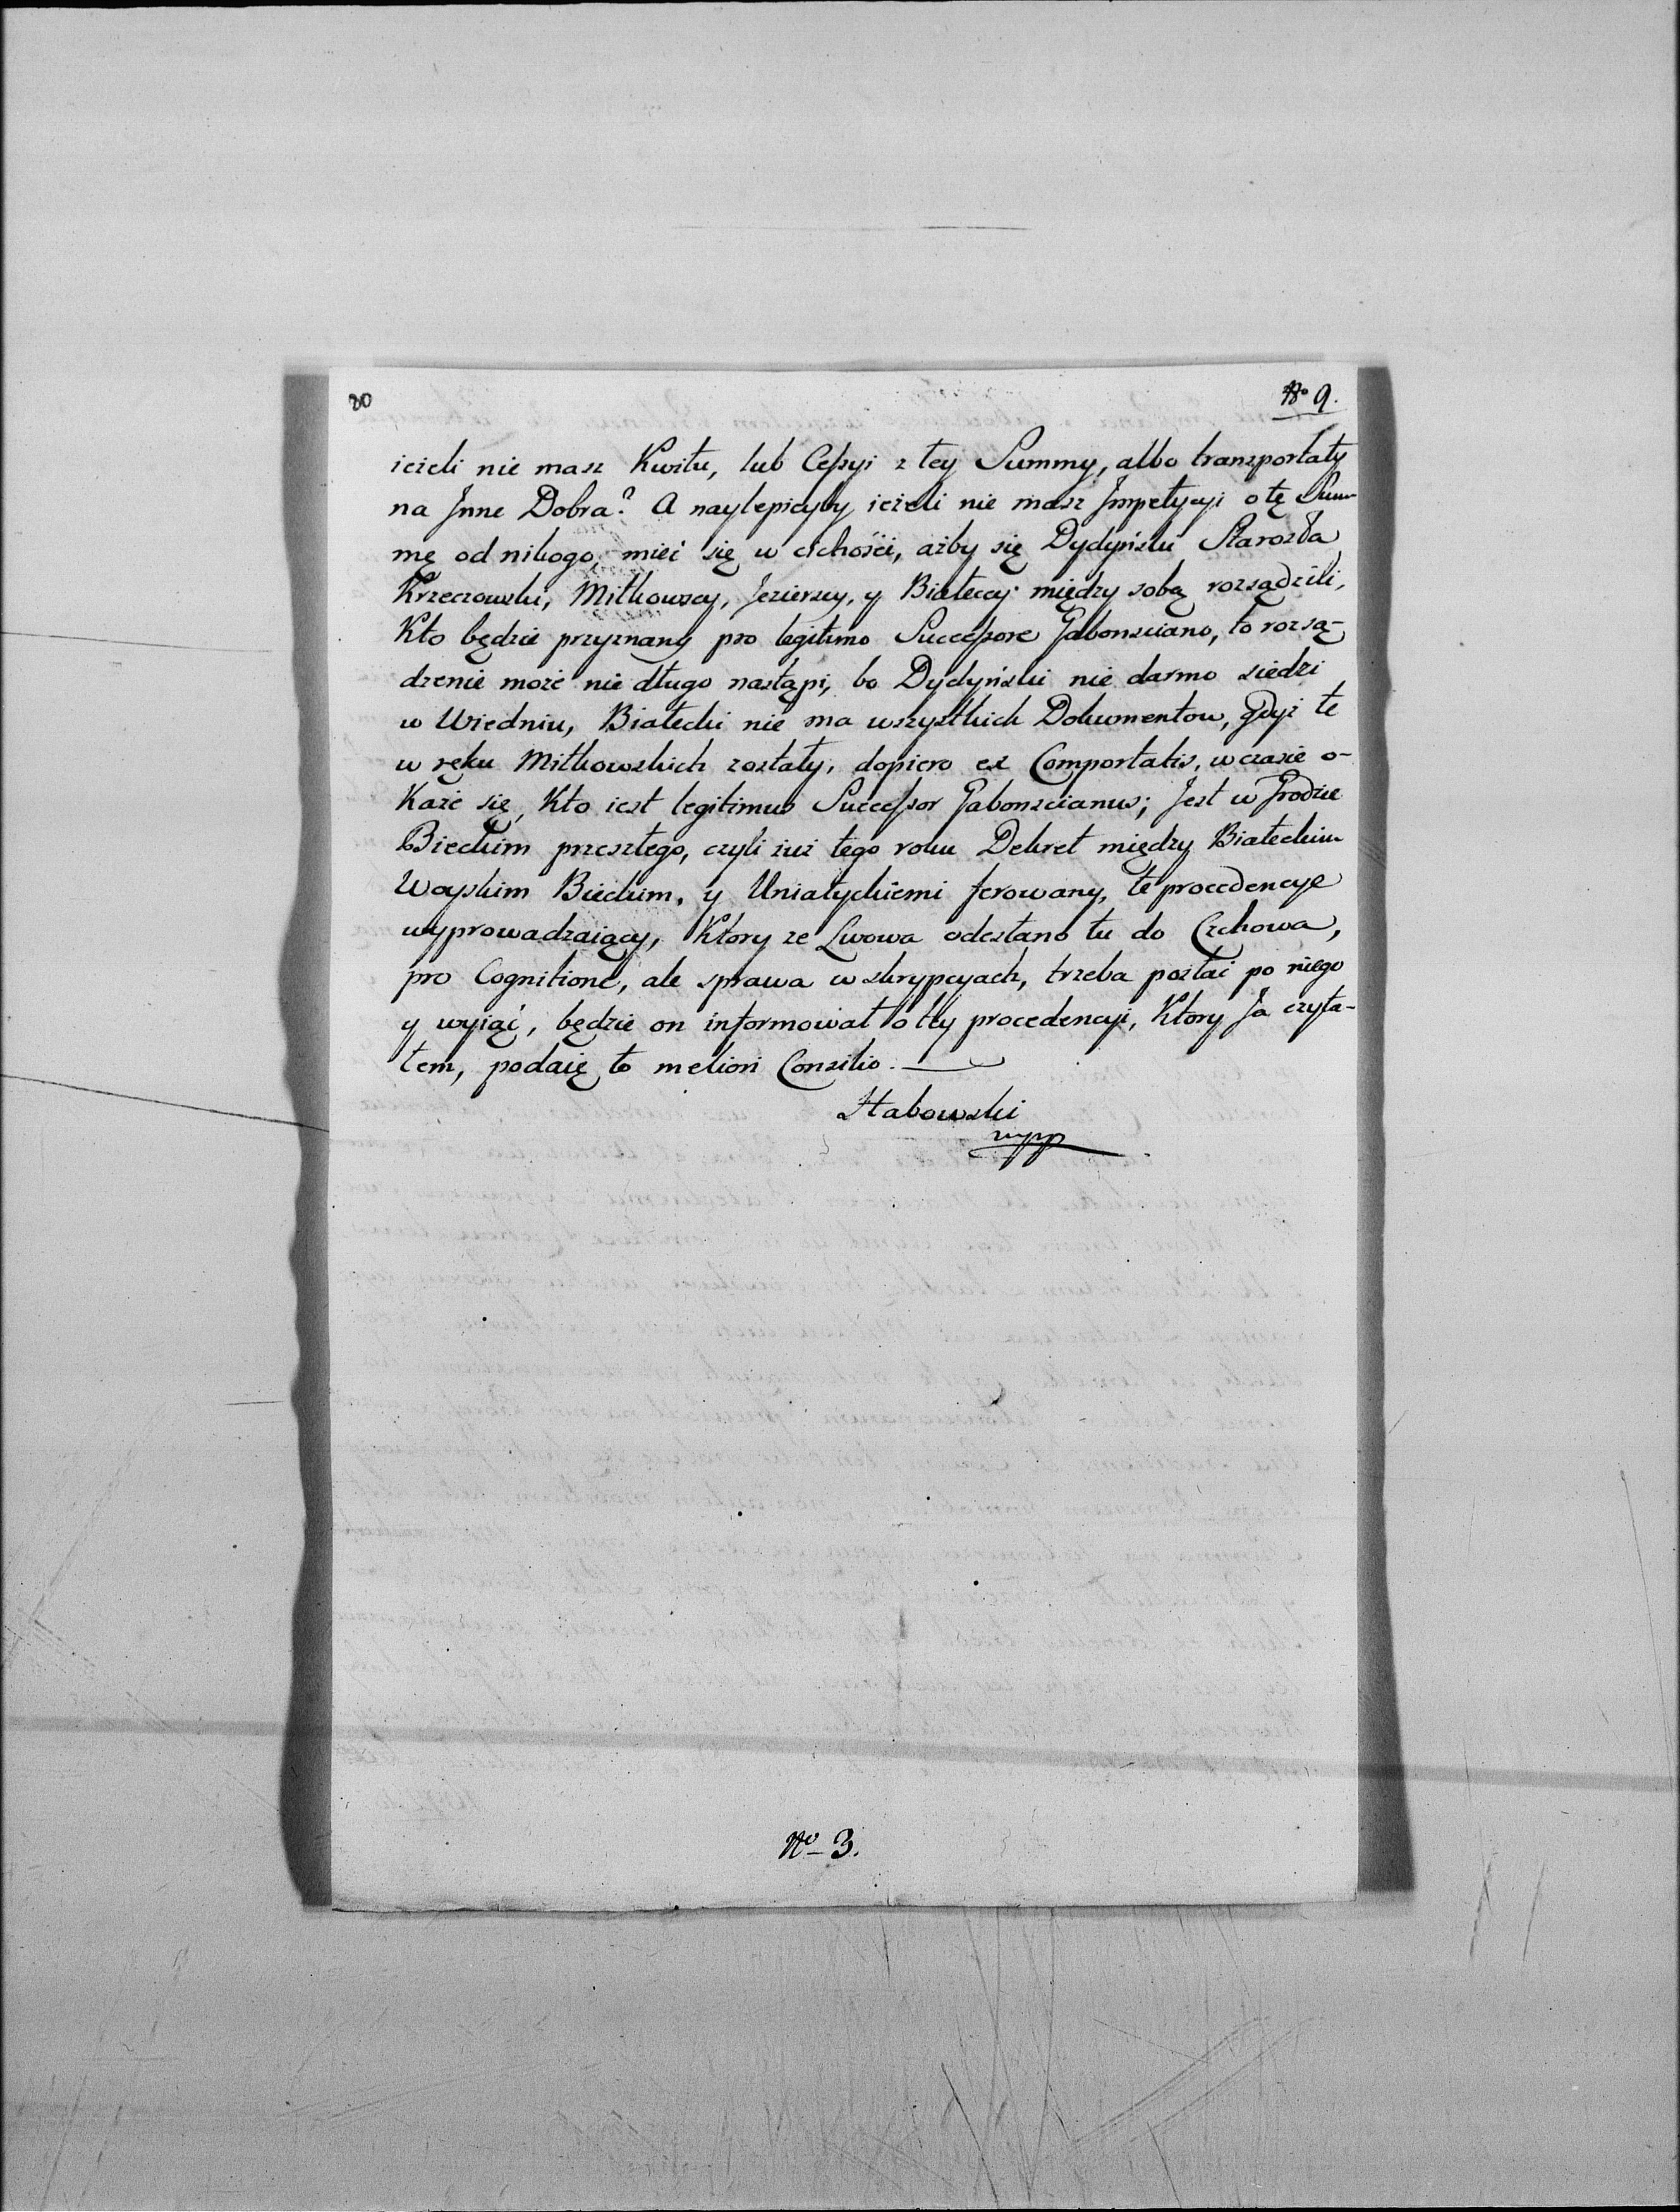 80
No 9.
ieżeli nie masz Kwitu, lub Cessyi z tey Summy, albo transportaty
na Jnne Dobra? A naylepieyby ieżeli nie masz Jmpetycyi o tę Sum-
mę od nikogo, mieć się w cichości, ażby się Dydyński Starosta
Krzeczowski, Miłkowscy, Jezierscy, y Białeccy między sobą rozsądzili,
Kto będzie przyznany pro legitimo Successore Gabonsciano, to rozsą-
dzenie może nie długo nastąpi, bo Dydyński nie darmo siedzi
w Wiedniu, Białecki nie ma wszystkich Dokumentow, gdyż te
w ręku Miłkowskich zostały, dopiero ex Comportatis, w czasie o-
każe się, Kto iest legitimus Successor Gabonscianus; Jest w Grodzie
Bieckim przeszłego, czyli iuż tego roku Dekret między Białeckim
Woyskim Bieckim, y Uniatyckiemi ferowany, te procedencye
wyprowadzaiący, Ktory ze Lwowa odesłano tu do Czchowa,
pro Cognitione, ale sprawa w skrypcyach, trzeba posłać po niego
y wyiąć, będzie on informował o tey procedencyi, Ktory Ja czyta-
łem, podaię to meliori Consilio.
Stabowski
mpp
No 3.